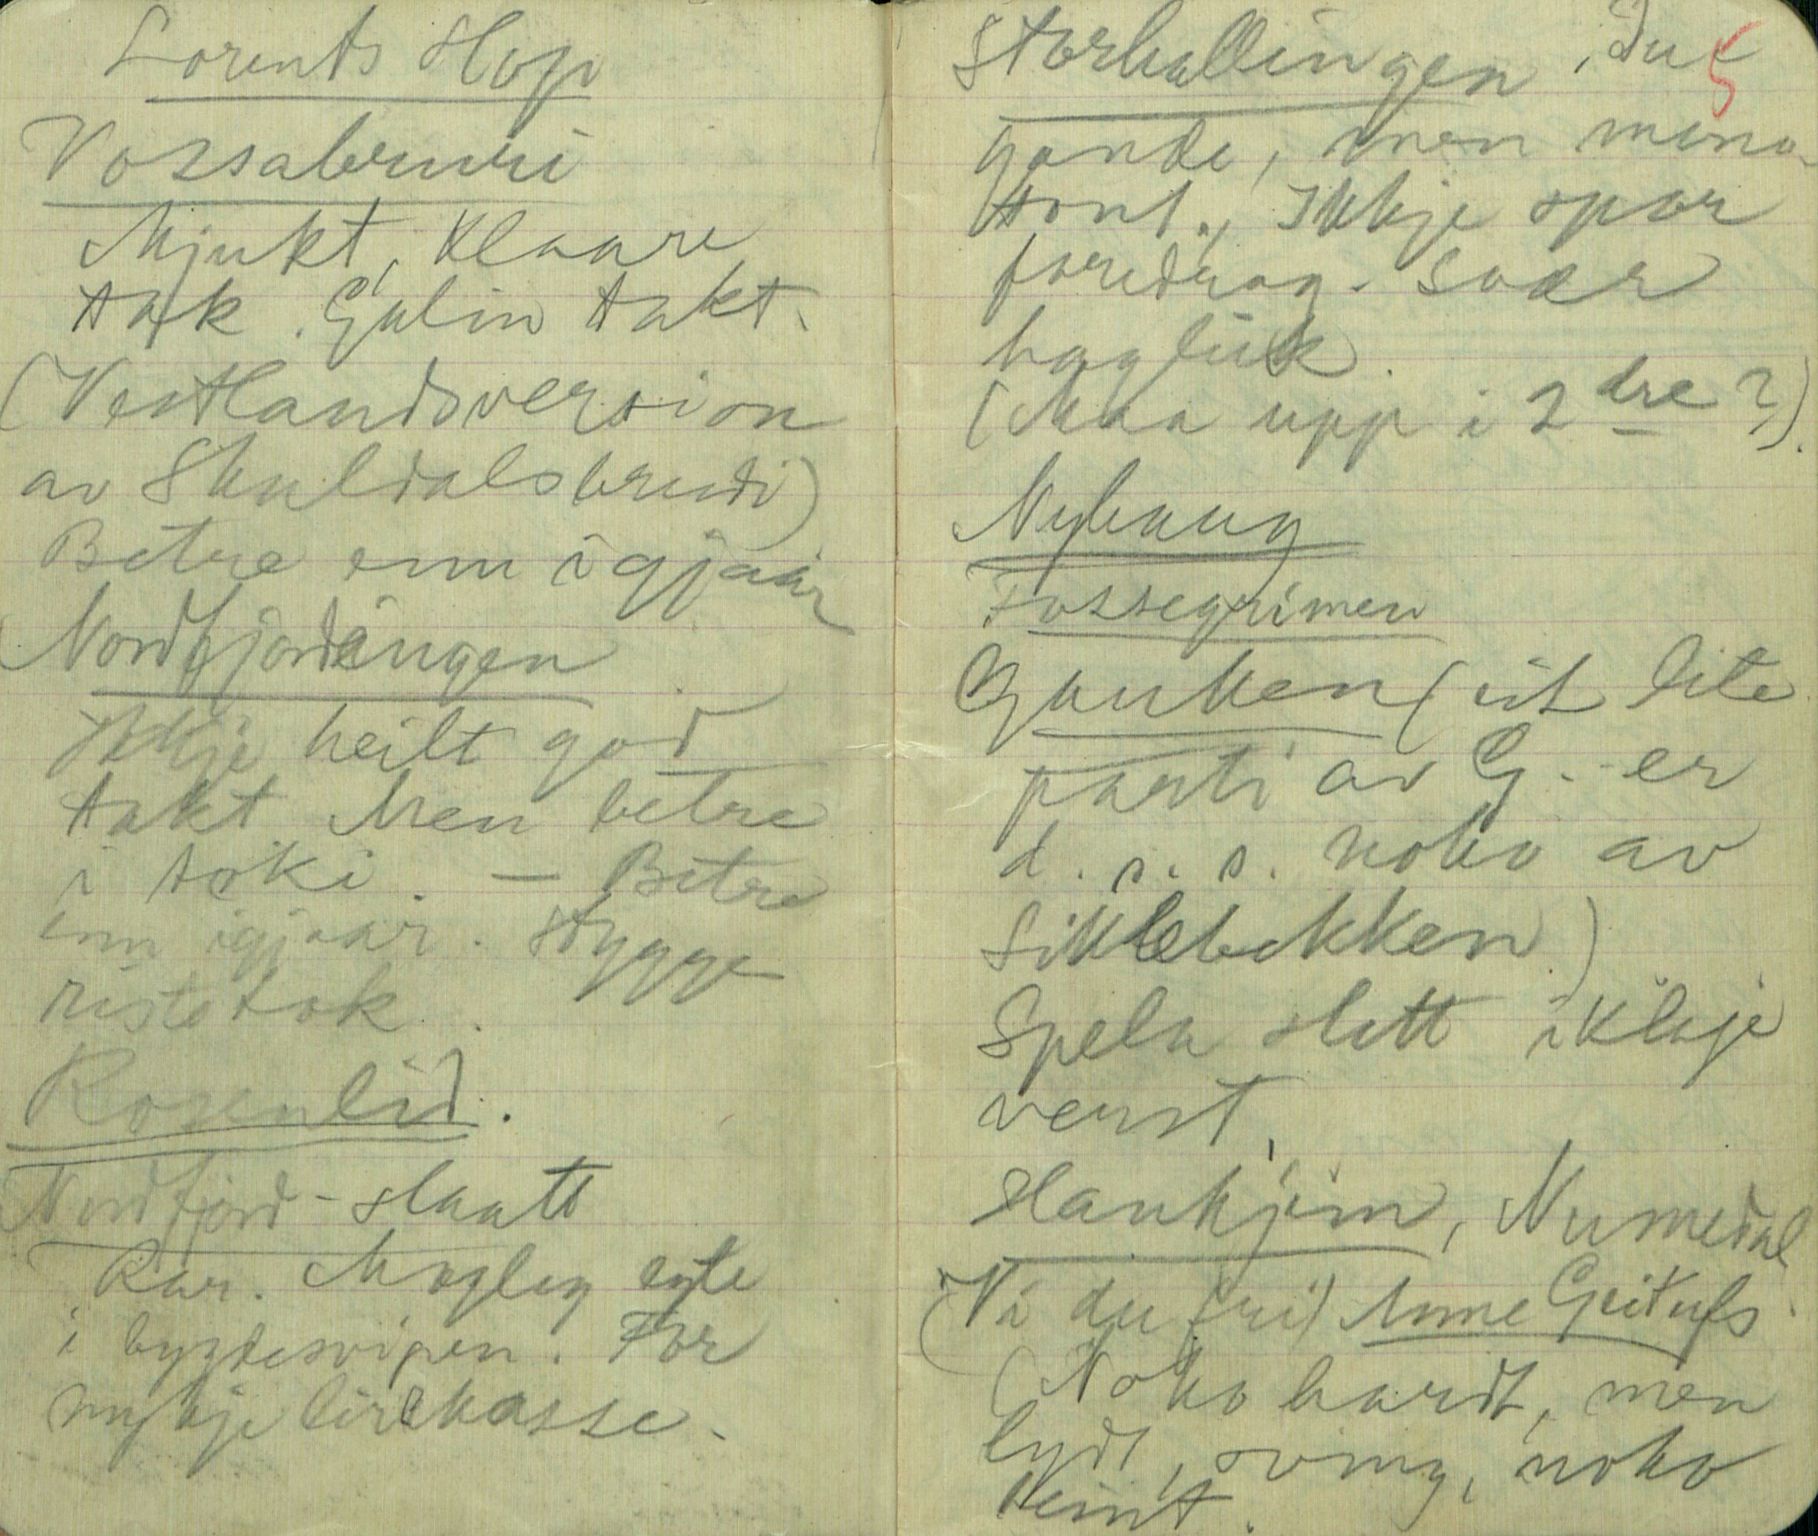 Lorents Hop
Vossabruri
Mjukt, Klaare
tak. Galin takt.
(Vestlandsversion
av Skuldalsbrudi)
Betre enn igjaar
Nordfjordingen
Ikkje heilt god
takt. Men betre
i taki. – Betre
enn igjaar. Stygge
ristetak.
Rosenlid.
Nordfjord-slaatt
Rar. Mogleg egte
i bygdesvipen. For
mykje lirekasse.
Storhallingen, Du- 5
gande, men mono-
tont., Ikkje spor
foredrag. Svær
hagleik.
(Maa upp i 2dre?).
Nyhaug
Fossegrimen
Gauken (eit lite
parti av G. er
d. s. s. noko av
Siklebekken)
Spela slett ikkje
verst.
Haukjem, Numedal
(Vi du fri) Anne Geitufs.
(Noko hardt, men
lydt, sving, noko
seint.